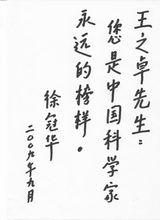 王之卓先生：
您是中国科学家
永远的榜样。
徐冠华
二〇〇九年九月